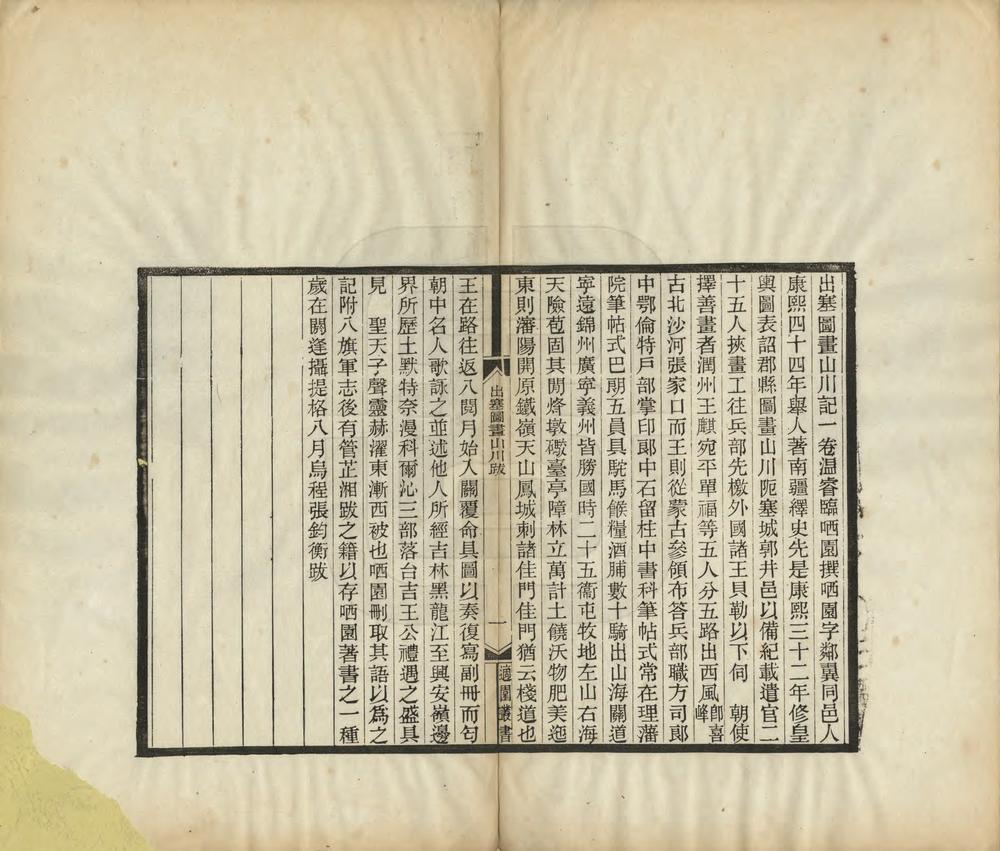 出塞圖畫山川記一卷温睿臨哂園撰哂園字鄰翼同邑人
康熙四十四年舉人著南疆繹史先是康熙三十二年修皇
輿圖表詔郡縣圖畫山川阨塞城郭井邑以備紀載遣官二
十五人挾畫工往兵部先檄外國諸王貝勒以下伺　朝使
擇善畫者潤州王麒宛平單福等五人分五路出西風卽喜峰
古北沙河張家口而王則從蒙古叅領布荅兵部職方司郞
中鄂倫特戶部掌印郞中石留柱中書科筆帖式常在理藩
院筆帖式巴朋五員具駝馬餱糧酒脯數十騎出山海關道
寧遠錦州廣寧義州皆勝國時二十五衞屯牧地左山右海
天險苞固其閒烽墩礮臺亭障林立萬計土饒沃物肥美迤
東則瀋陽開原鐵嶺天山鳳城刺諸佳門佳門猶云棧道也
出塞圖畫山川跋
一
適園叢書
王在路往返八閱月始入關覆命具圖以奏復寫副冊而匄
朝中名人歌詠之並述他人所經吉林黑龍江至興安嶺邊
界所歷土默特奈漫科爾沁三部落台吉王公禮遇之盛具
見　聖天子聲靈赫濯東漸西被也哂園刪取其語以爲之
記附八旗軍志後有管芷湘跋之籍以存哂園著書之一種
歲在閼逢攝提格八月烏程張鈞衡跋